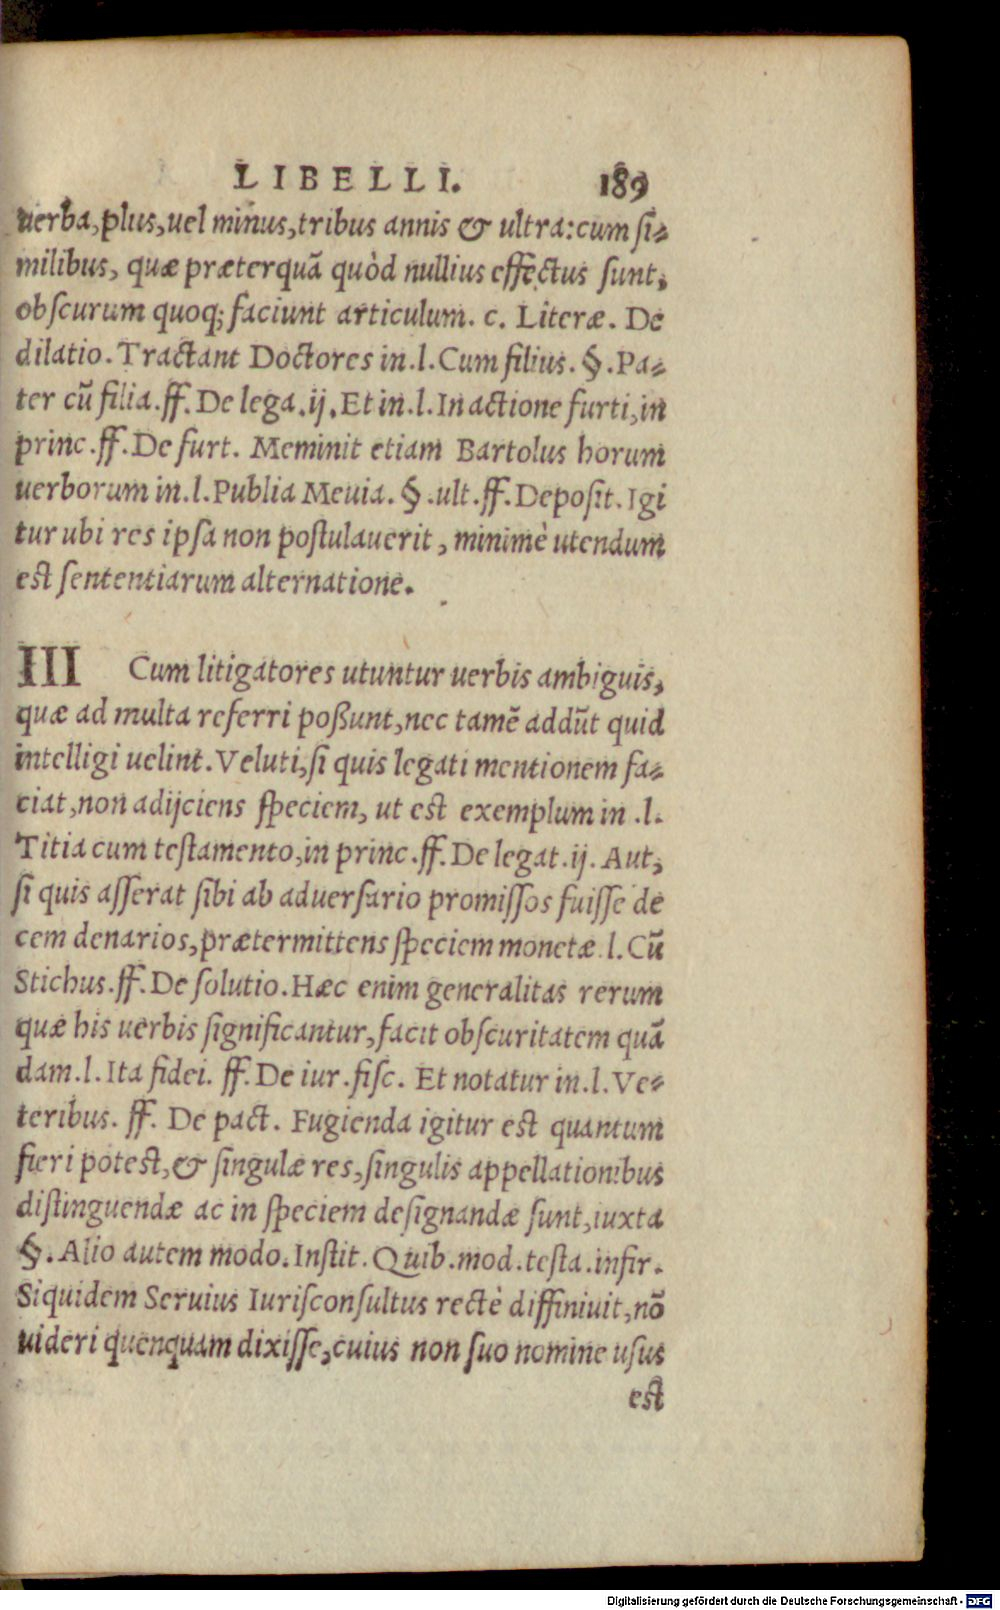 LIBELLI. 189
uerba, plus, uel minus, tribus annis & ultra: cum si⸗
milibus, quæ præterquã quòd nullius effectus sunt,
obscurum quoq; faciunt articulum. c. Literæ. De
dilatio. Tractant Doctores in .l. Cum filius. §. Pa⸗
ter cũ filia. ff. De lega. ij. Et in .l. In actione furti, in
princ. ff. De furt. Meminit etiam Bartolus horum
uerborum in .l. Publia Meuia. §. ult. ff. Deposit. Igi
tur ubi res ipsa non postulauerit, minimè utendum
est sententiarum alternatione.
III Cum litigatores utuntur uerbis ambiguis,
quæ ad multa referri poßunt, nec tamẽ addũt quid
intelligi uelint. Veluti, si quis legati mentionem fa⸗
ciat, non adijciens speciem, ut est exemplum in .l.
Titia cum testamento, in princ. ff. De legat. ij. Aut,
si quis asserat sibi ab aduersario promissos fuisse de
cem denarios, prætermittens speciem monetæ .l. Cũ
Stichus. ff. De solutio. Hæc enim generalitas rerum
quæ his uerbis significantur, facit obscuritatem quã
dam .l. Ita fidei. ff. De iur. fisc. Et notatur in .l. Ve⸗
teribus. ff. De pact. Fugienda igitur est quantum
fieri potest, & singulæ res, singulis appellationibus
distinguendæ ac in speciem designandæ sunt, iuxta
§. Alio autem modo. Instit. Quib. mod. testa. infir.
Siquidem Seruius Iurisconsultus rectè diffiniuit, nõ
uideri quenquam dixisse, cuius non suo nomine usus
est
Digitalisierung gefördert durch die Deutsche Forschungsgemeinschaft - DFG